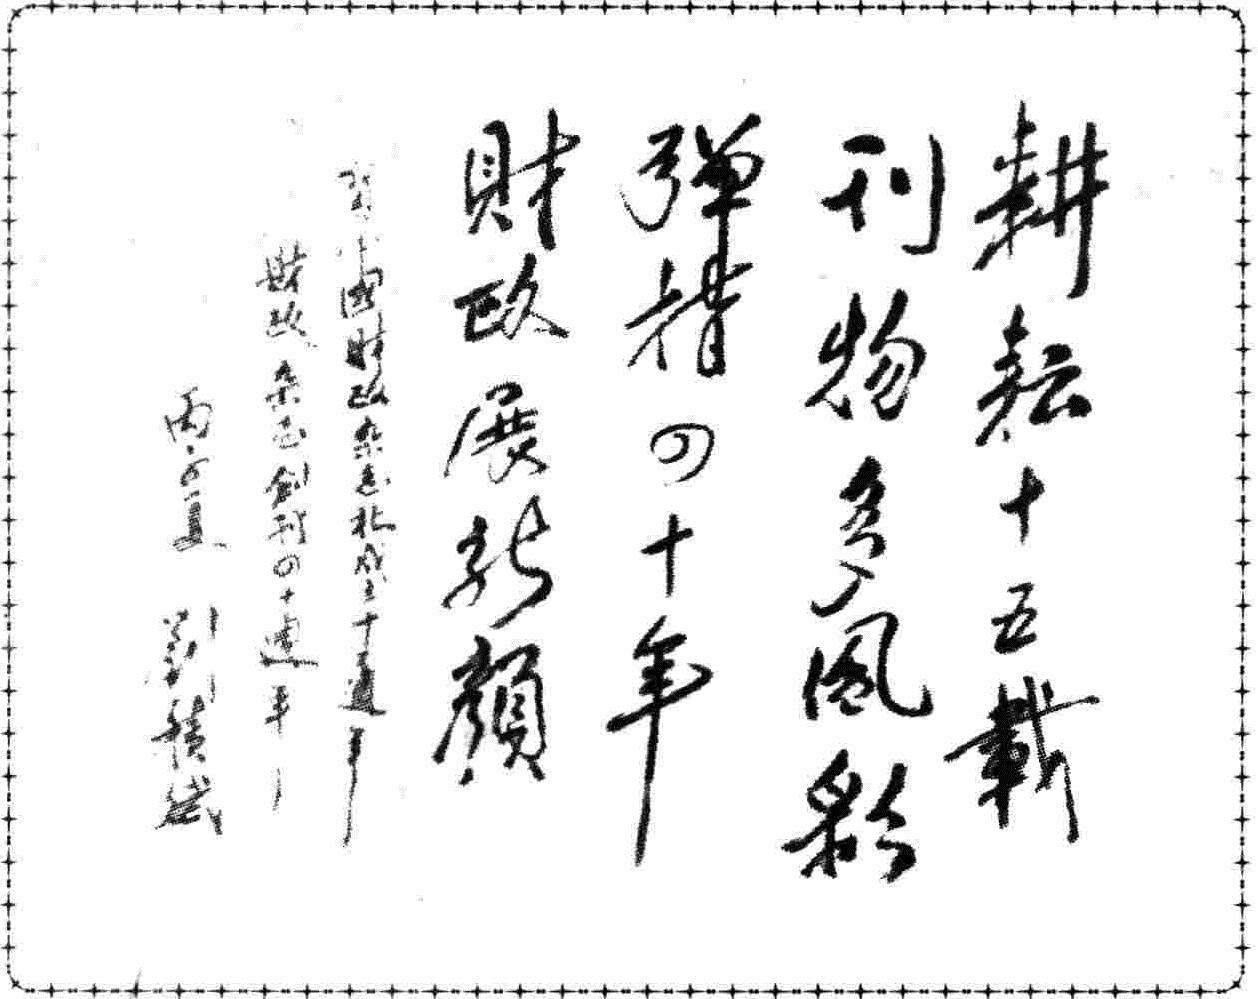 耕耘十五載
刊物多風彩
殫精四十年
財政展新顏
賀中國財政杂志社成立十五週年
財政杂志創刊四十週年
丙申夏 劉積斌